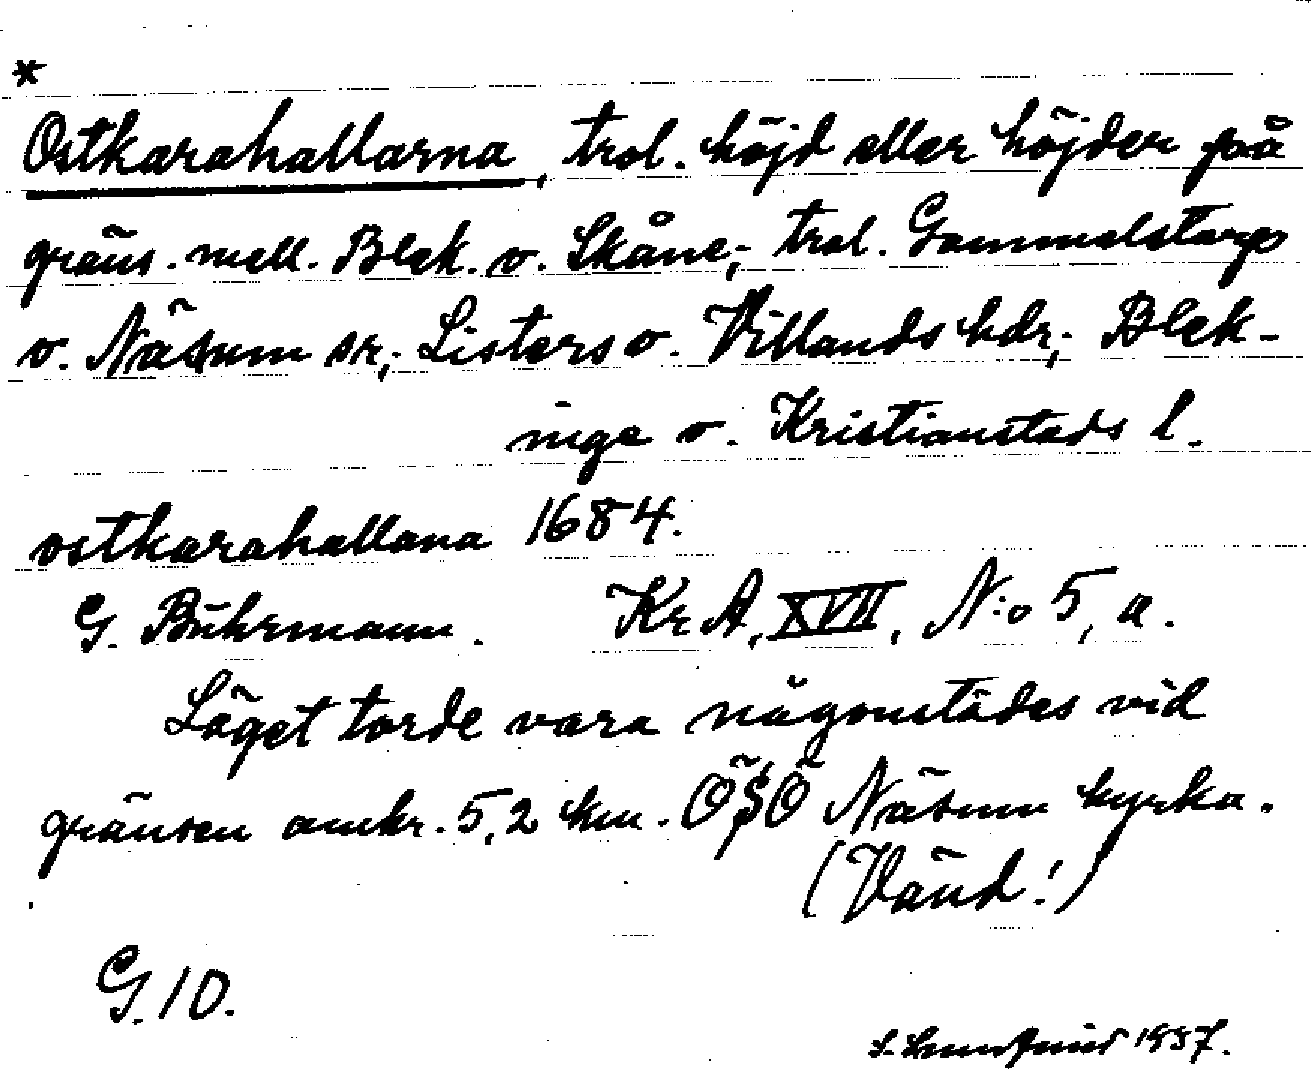 *
Ostkarahallarna, trol. höjd eller höjder på
gräns. mell. Blek. o. Skåne; trol. Gammalstorp
o. Näsum sr; Listers o. Villands hdr; Blek-
inge o. Kristianstads l.
ostkarahallana 1684.
G. Buhrmann. Kr A, XVII, N:o 5, a.
Läget torde vara någonstädes vid
gränsen omkr. 5,2 km. ÖSÖ Näsum kyrka.
(Vänd!)
G. 10.
1937.